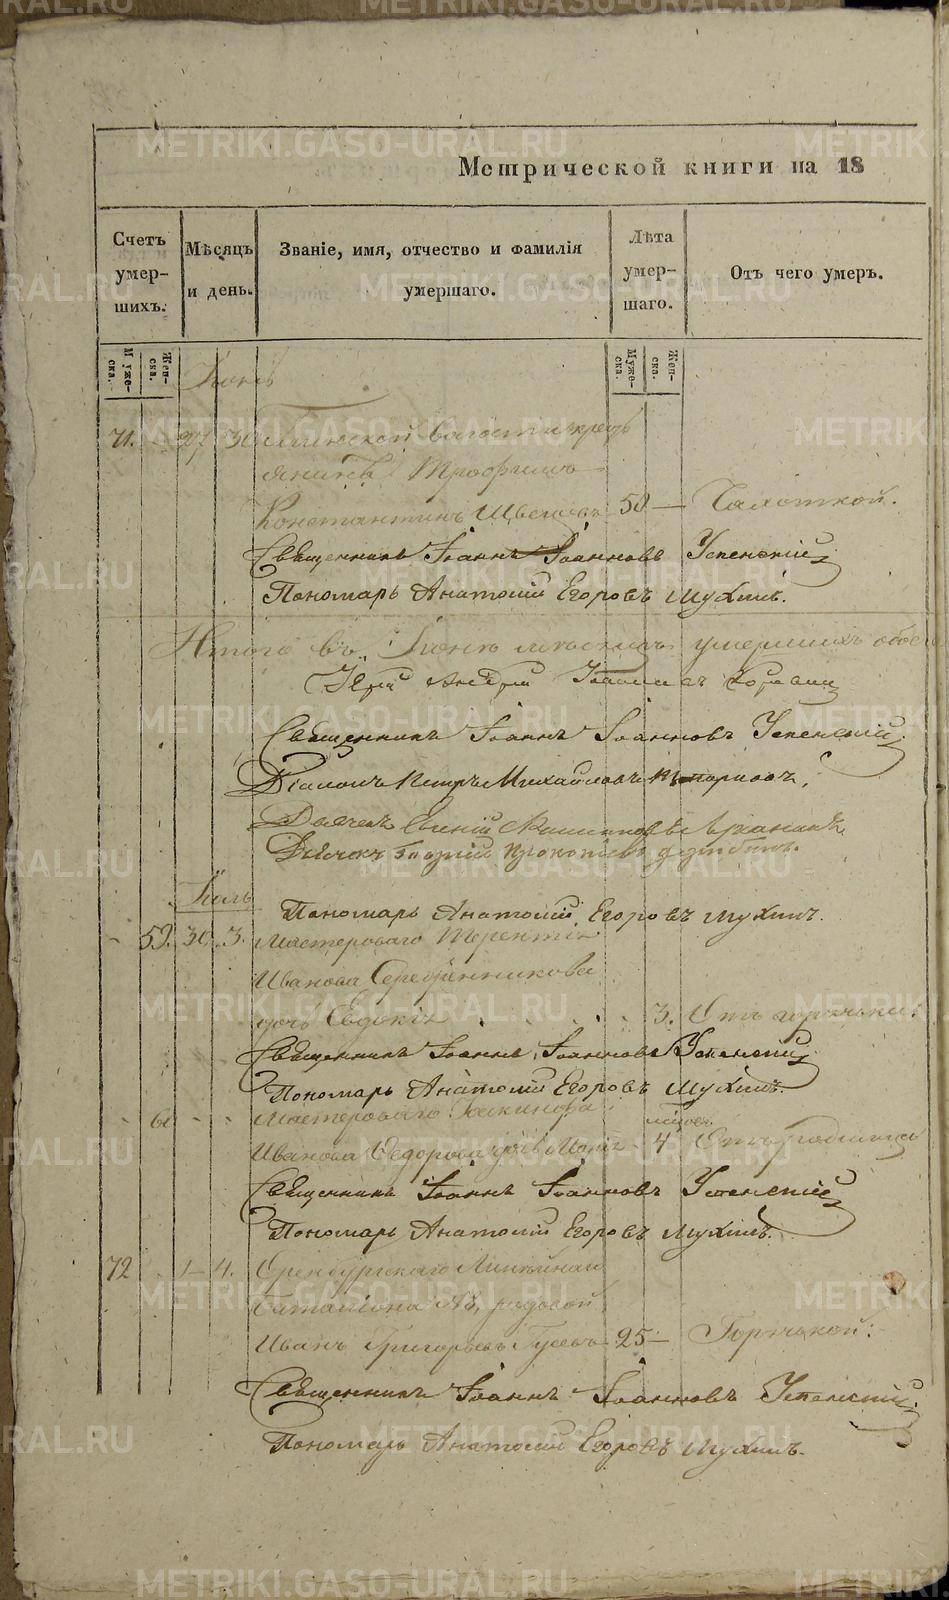 Метрической книги на 18
Счетъ умершихъ.
Мѣсяцъ и день.
Званіе, имя, отчество и фамилія умершаго.
Лѣта умершаго.
Отъ чего умеръ.
Мужеска.
Женска.
Мужеска.
Женска.
Іюнь
71. 27 30 волости кресть
янинъ Трофимъ
Константинъ Швецовъ 50 — Чахоткой.
Священникъ Іоаннъ Іоанновъ Успенскій
Пономарь Анатолій Егоровъ Мухинъ.
Итого въ Іюнѣ мѣсяцѣ умершихъ обоего
Іерей Андрей
Священникъ Іоаннъ Іоанновъ Успенскій
Діаконъ Петръ Михайловъ
Дьячекъ Евгеній
Дьячекъ Георгій Прокопіевъ
Іюль
Пономарь Анатолій Егоровъ Мухинъ.
59. 30. 3. Мастероваго Терентія
Иванова Серебренникова
дочь Евдокія 3. Отъ горячьки.
Священникъ Іоаннъ Іоанновъ Успенскій
Пономарь Анатолій Егоровъ Мухинъ.
60 Мастероваго
Иванова Федорова дочь Марія 4 Отъ родимца
Священникъ Іоаннъ Іоанновъ Успенскій
Пономарь Анатолій Егоровъ Мухинъ.
72 1 — 4. Оренбургскаго Линѣйнаго
баталіона рядовой
Иванъ Григорьевъ Гусевъ 25 — Горячькой.
Священникъ Іоаннъ Іоанновъ Успенскій
Пономарь Анатолій Егоровъ Мухинъ.
METRIKI.GASO-URAL.RU